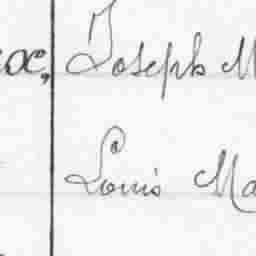 Joseph M
Louis Ma